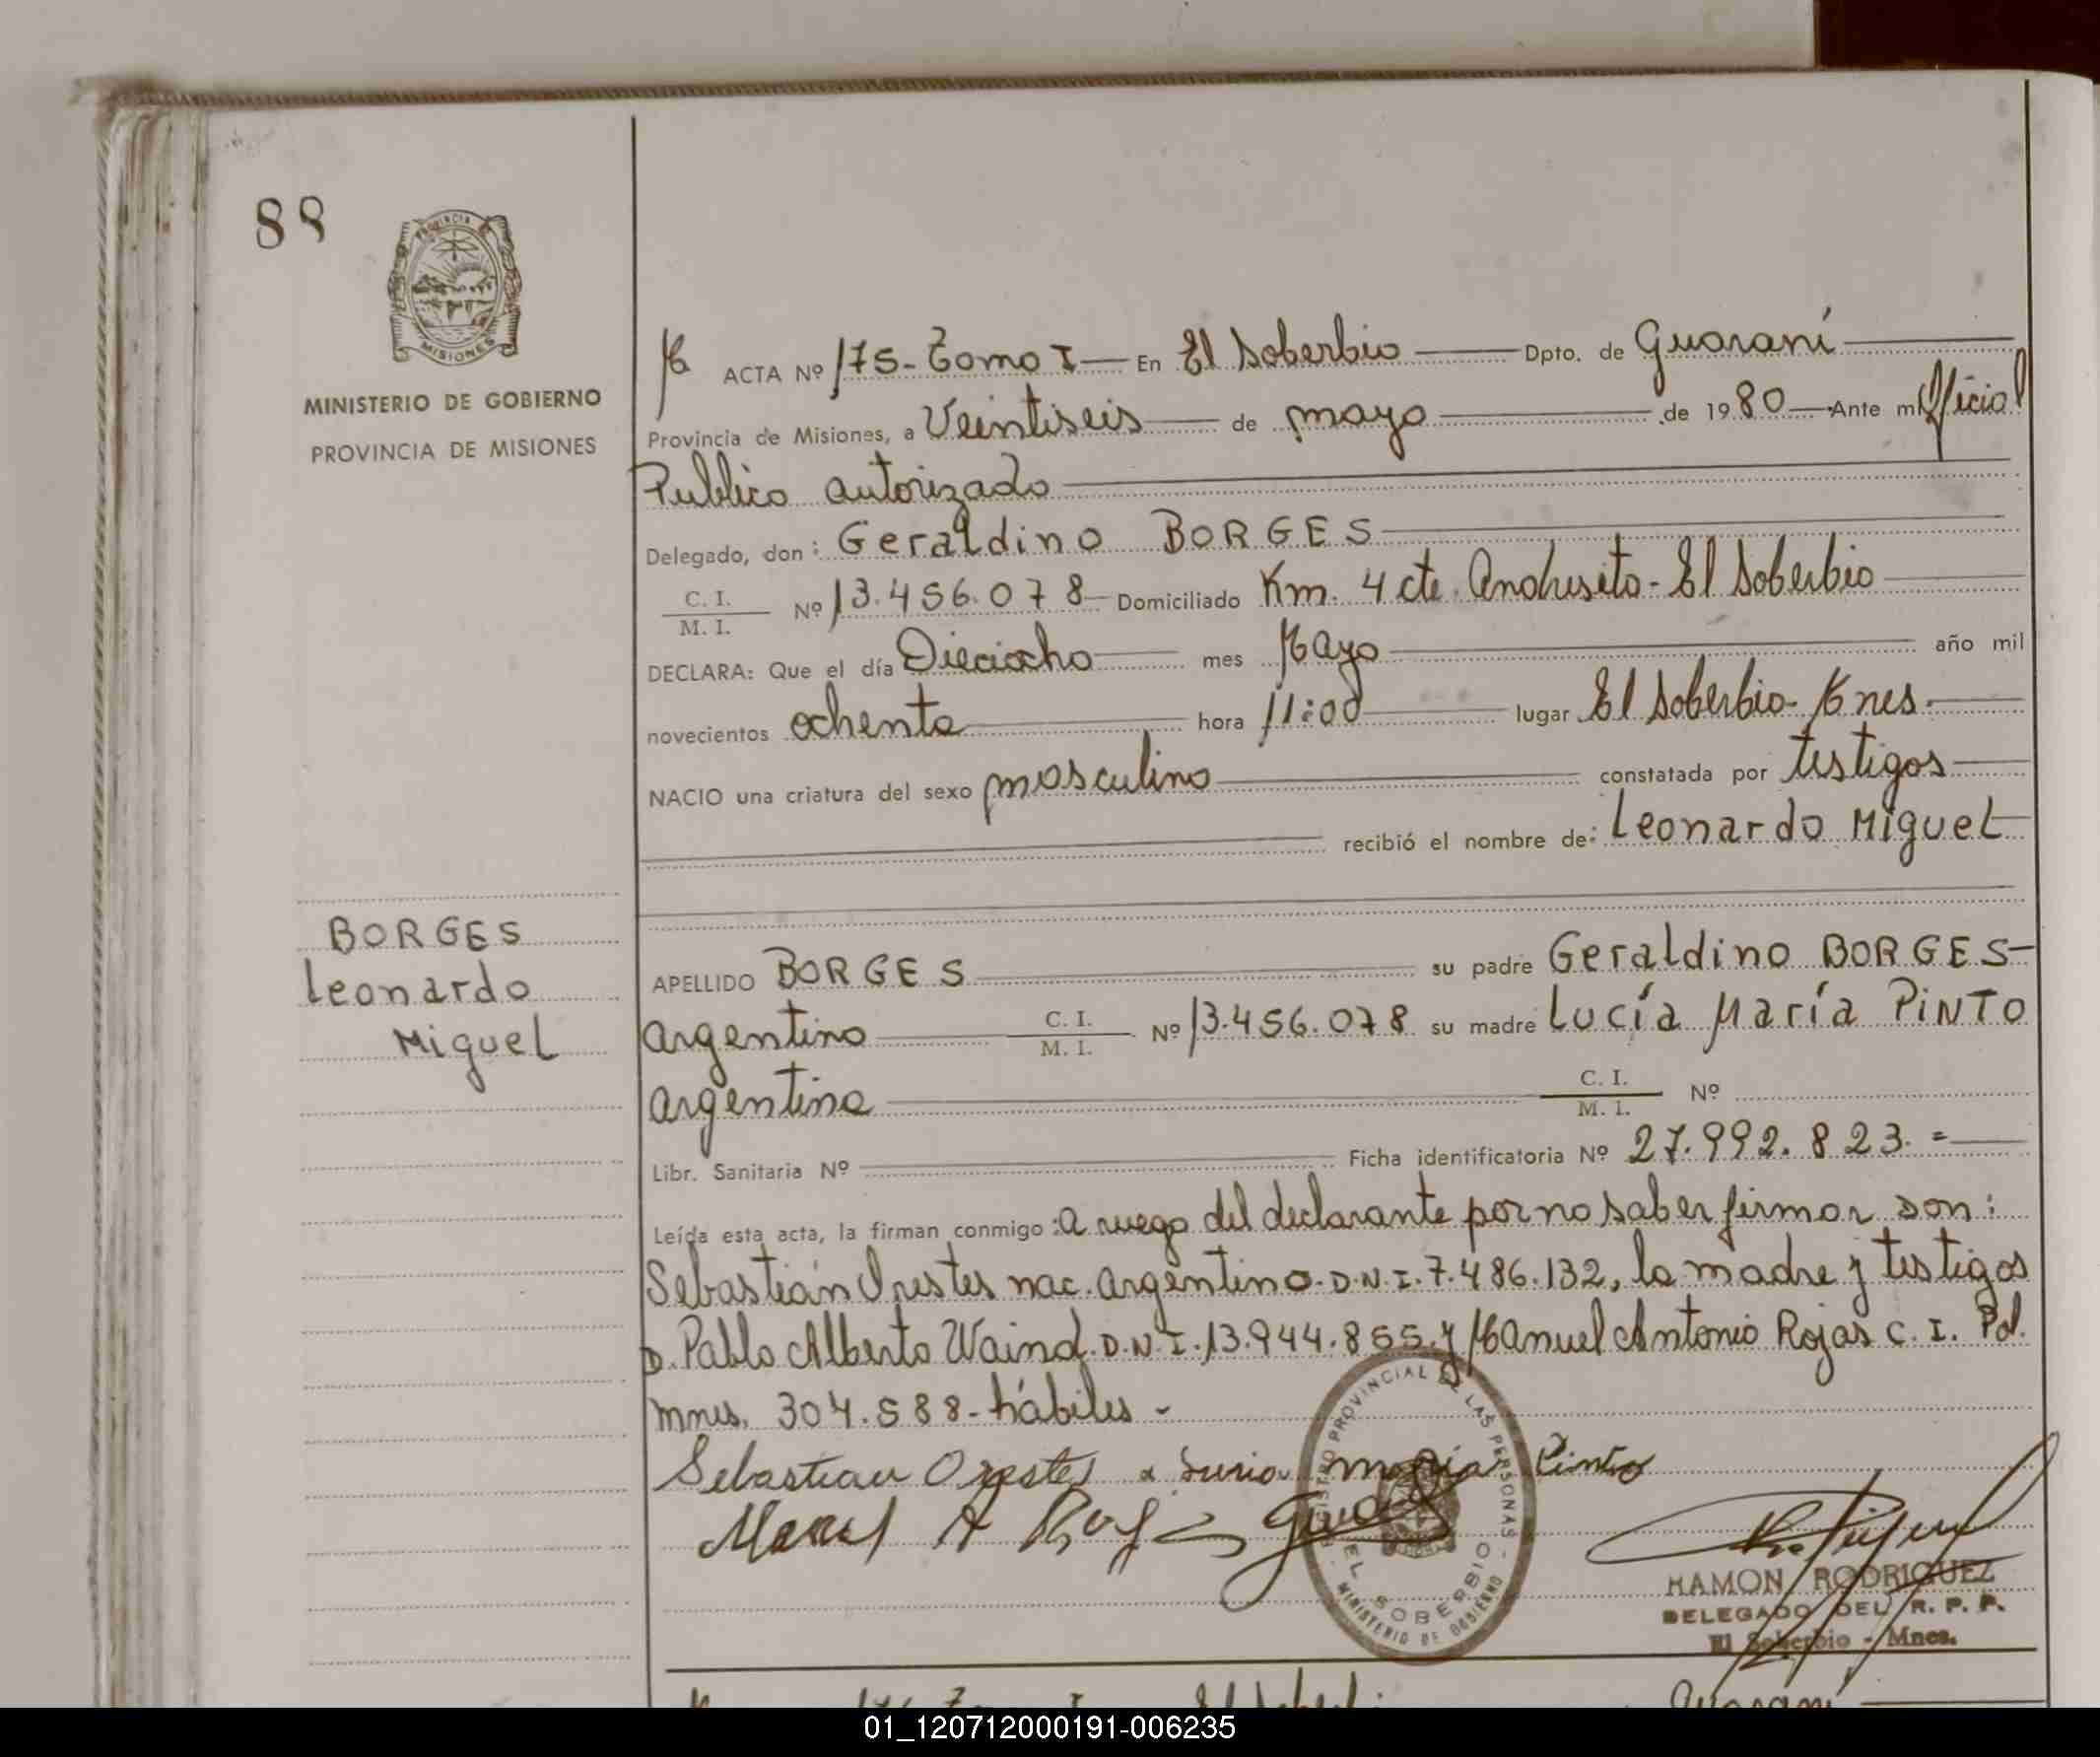 88
PROVINCIA
MISIONES
MINISTERIO DE GOBIERNO
PROVINCIA DE MISIONES
ACTA Nº 175- Tomo I — En El Soberbio — Dpto. de Guaraní
Provincia de Misiones, a Veintiseis — de mayo — de 1980 — Ante mi Oficial
Publico autorizado
Delegado, don: Geraldino BORGES
C. I.
M. I. Nº 13.456.078 — Domiciliado Km. 4 cte. Andresito - El Soberbio
DECLARA: Que el día Dieciocho — mes Mayo — año mil
novecientos ochenta — hora 11:00 — lugar El Soberbio - Mnes.
NACIO una criatura del sexo masculino — constatada por testigos
recibió el nombre de: Leonardo Miguel
BORGES
Leonardo
Miguel
APELLIDO BORGES — su padre Geraldino BORGES
argentino — C. I.
M. I. Nº 13.456.078 su madre Lucía María PINTO
argentina — C. I.
M. I. Nº
Libr. Sanitaria Nº — Ficha identificatoria Nº 27.992.823.=
Leída esta acta, la firman conmigo: a ruego del declarante por no saber firmar son:
Sebastián Orestes nac. argentino. D.N.I. 7.486.132, la madre y testigos
D. Pablo Alberto Waind. D.N.I. 13.944.855. y Manuel Antonio Rojas C. I. Pol.
mnes. 304.588- hábiles -
Sebastian Orestes maria Pinto
REGISTRO PROVINCIAL DE LAS PERSONAS - EL SOBERBIO
MINISTERIO DE GOBIERNO
RAMON RODRIGUEZ
DELEGADO DEL R. P. P.
El Soberbio - Mnes.
01_120712000191-006235